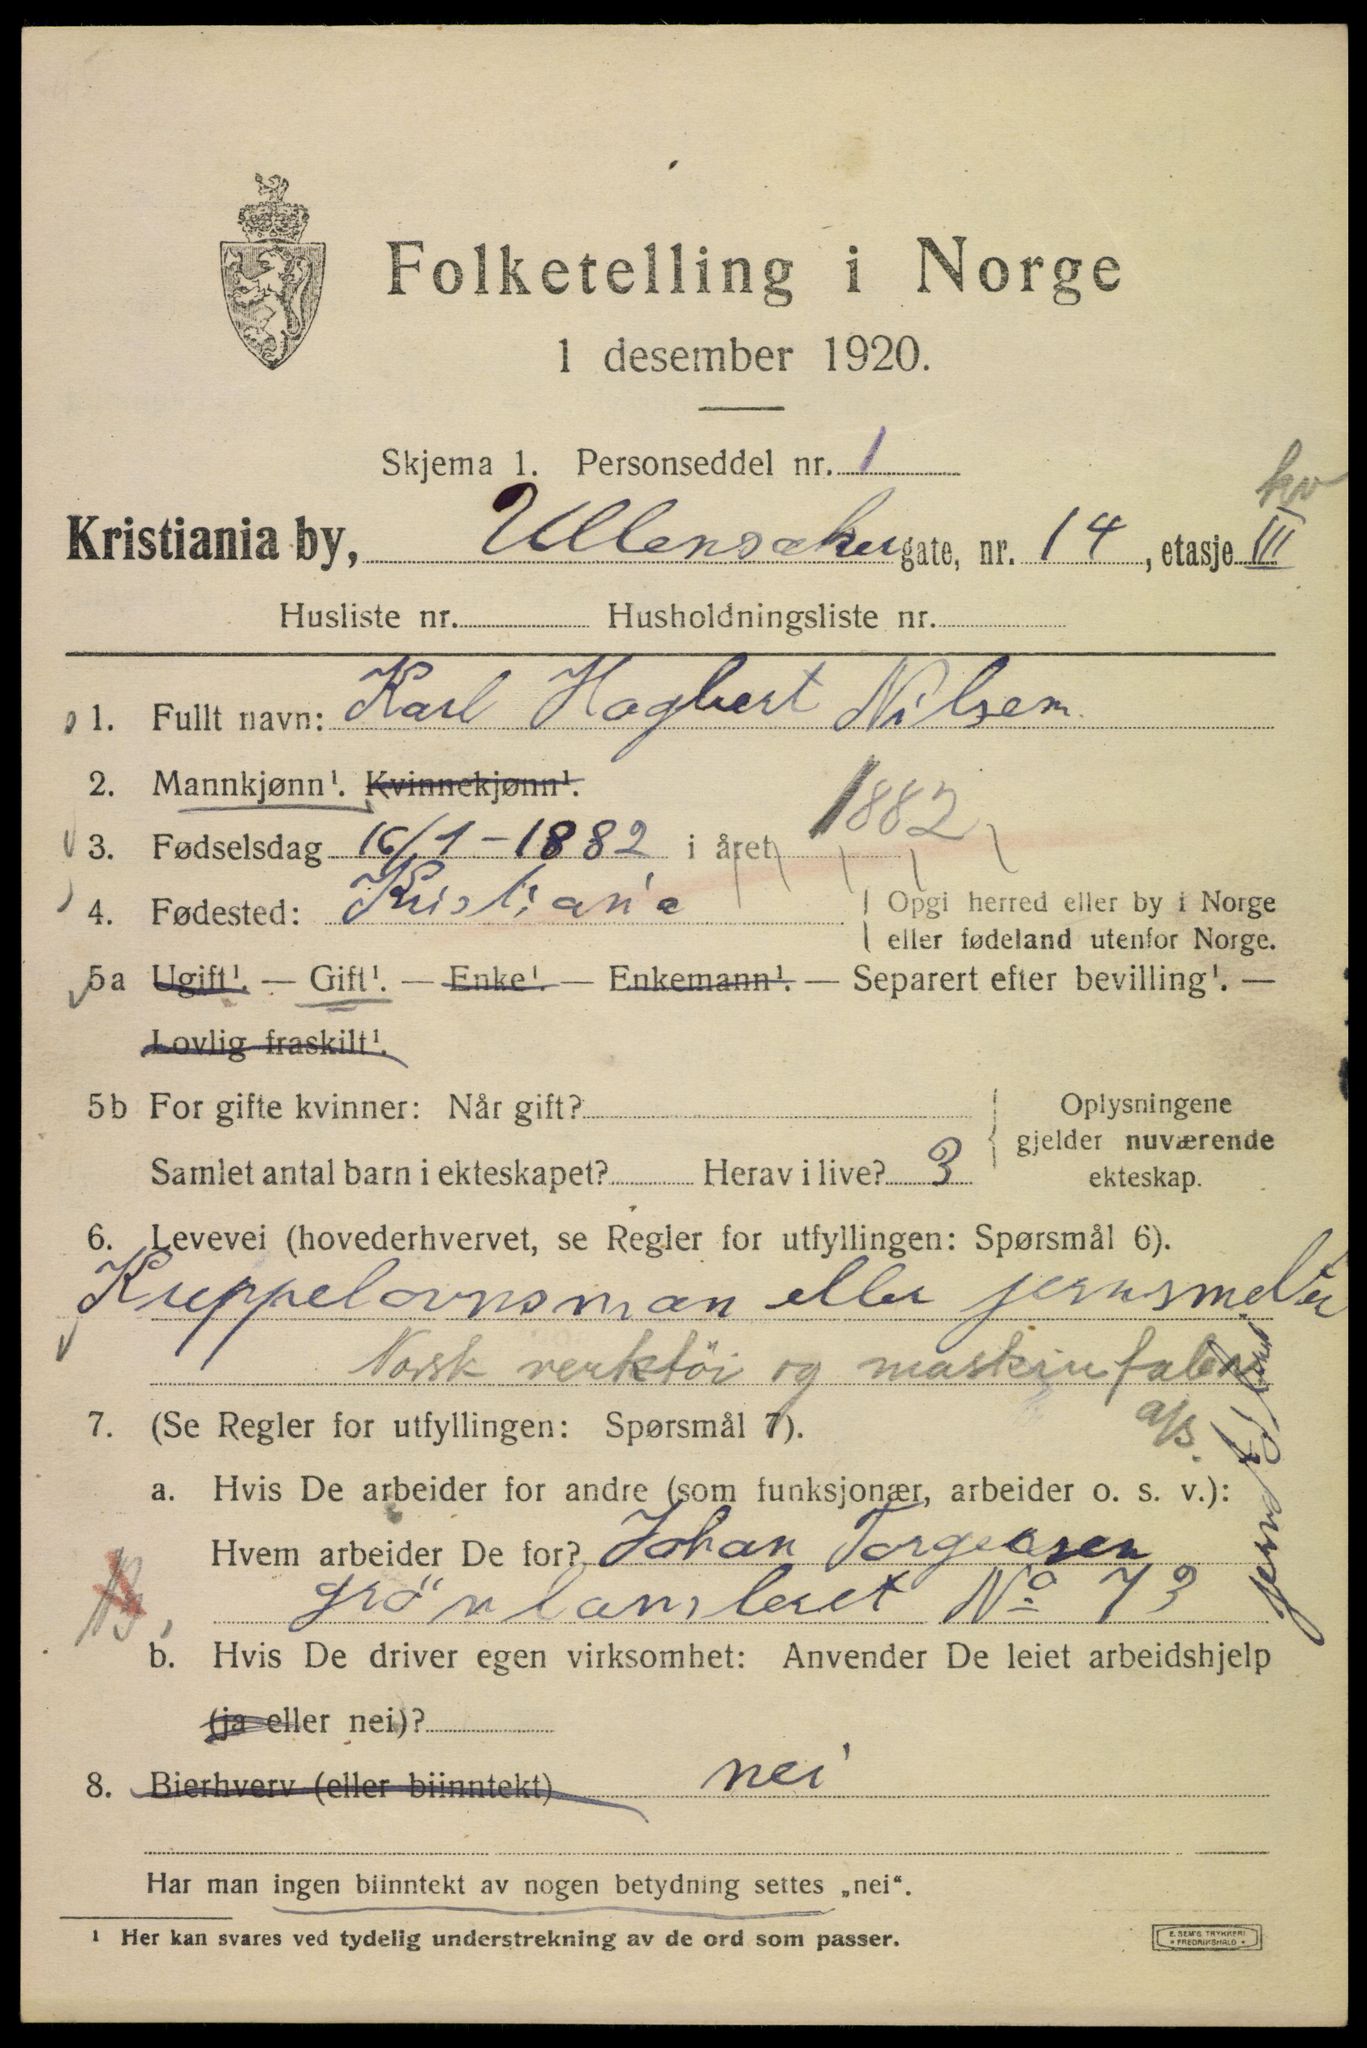 Folketelling i Norge
1 desember 1920.
Skjema 1. Personseddel nr. 1
hv
Kristiania by, Ullensakergate, nr. 14, etasje III
Husliste nr. Husholdningsliste nr.
1. Fullt navn: Karl Hagbert Nilsen
2. Mannkjønn¹. Kvinnekjønn¹.
3. Fødselsdag 16/1-1882 i året 1882
4. Fødested: Kristiania
Opgi herred eller by i Norge
eller fødeland utenfor Norge.
5a Ugift¹. — Gift¹. — Enke¹. — Enkemann¹. — Separert efter bevilling¹. —
Lovlig fraskilt¹.
5b For gifte kvinner: Når gift?
Samlet antal barn i ekteskapet? Herav i live? 3
Oplysningene
gjelder nuværende
ekteskap.
6. Levevei (hovederhvervet, se Regler for utfyllingen: Spørsmål 6).
Kuppelovnsman eller jernsmelter
Norsk verktöi og maskinfabr
a/s.
7. (Se Regler for utfyllingen: Spørsmål 7).
a. Hvis De arbeider for andre (som funksjonær, arbeider o. s. v.):
Hvem arbeider De for? Johan Torgersen
grönlansleret No 73
b. Hvis De driver egen virksomhet: Anvender De leiet arbeidshjelp
(ja eller nei)?
8. Bierhverv (eller biinntekt) nei
Har man ingen biinntekt av nogen betydning settes „nei“.
¹ Her kan svares ved tydelig understrekning av de ord som passer.
E. SEM'S TRYKKERI
FREDRIKSHALD